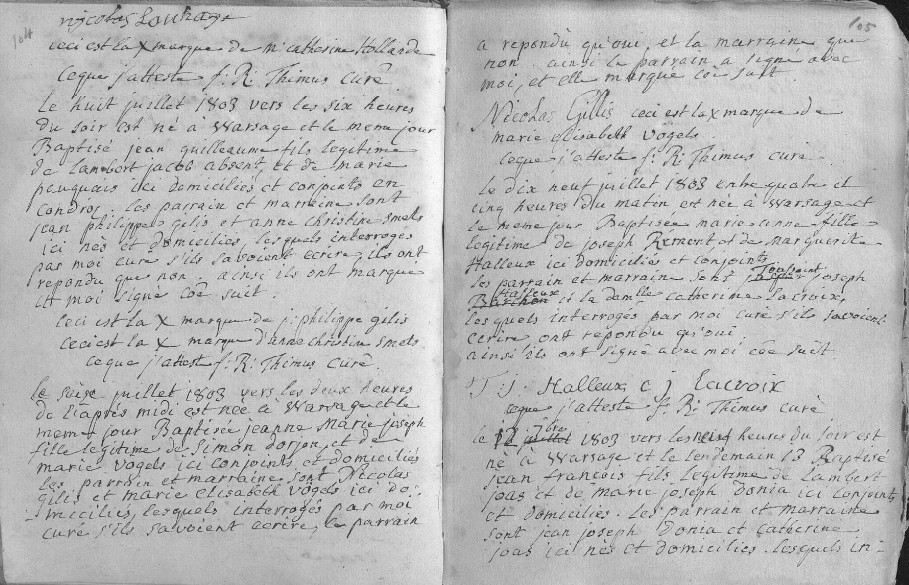 104
Nicolas Louhage
ceci est la X marque de M: catherine Hollande
ceque j'atteste f: R: Thimus curé
Le huit juillet 1803 vers les six heures
du soir est né à Warsage et le meme jour
Baptisé jean guilleaume fils legitime
de lambert jacob absent et de marie
peuquais ici domiciliés et conjoints en
Condroz. les parrain et marraine sont
jean philippe gilis et anne christine smets
ici nés et domiciliés, lesquels interrogés
par moi curé s'ils savoient ecrire, ils ont
repondu que non. ainsi ils ont marqué
et moi signé cõe suit.
ceci est la X marque de j: philippe gilis
ceci est la X marque d'anne christin smets
ceque j'atteste f: R: Thimus curé
le seise juillet 1803 vers les deux heures
de l'après midi est née à Warsage et le
meme jour Baptisée jeanne Marie joseph
fille legitime de Simon dorjon et de
marie vogels ici conjoints et domiciliés
les parrain et marraine sont Nicolas
gilis et marie elisabeth vogels ici do-
miciliés, lesquels interrogés par moi
curé s'ils savoient ecrire, le parrain
105
a repondu qu'oui, et la marraine que
non. ainsi le parrain a signé avec
moi, et elle marqué cõe suit
Nicolas Gillis ceci est la X marque de
marie Elisabeth vogels.
ceque j'atteste f: R: Thimus curé
le dix neuf juillet 1803 entre quatre et
cinq heures du matin est née à Warsage et
le meme jour Baptisée marie-anne fille
legitime de joseph Rement et de marguerite
Halleux ici domiciliés et conjoints
les parrain et marrain sont Toussaint joseph
Halleux et la demlle catherine lacroix,
lesquels interrogés par moi curé s'ils savoient
ecrire ont repondu qu'oui
ainsi ils ont signé avec moi cõe suit.
T: j: Halleux c j lacroix
ceque j'atteste f: R: Thimus curé
le 12 7bre 1803 vers les neuf heures du soir est
né à Warsage et le lendemain 13 Baptisé
jean francois fils legitime de lambert
joas et de marie joseph Donia ici conjoints
et domiciliés. les parrain et marraine
sont jean joseph Donia et catherine
joas ici nés et domiciliés. lesquels in-